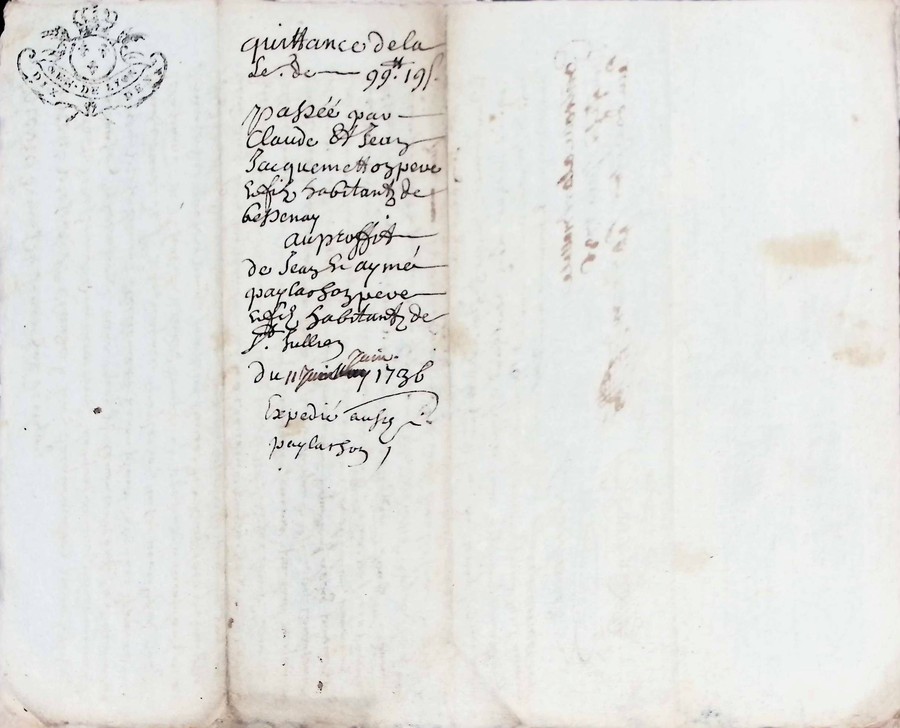 GEN. DE LYON
DIX DEN.
quittance de la
so.e de — 99ᵗᵗ 19 s.
passée par —
Claude Et Jean
Jacquemetton pere
et fils habitants de
bessenay
au proffit —
de Jean Et aymé
paylarhon pere
et fils habitants de
St. Jullien
du 11 Juin 1736
Expedié aus.
paylarhon